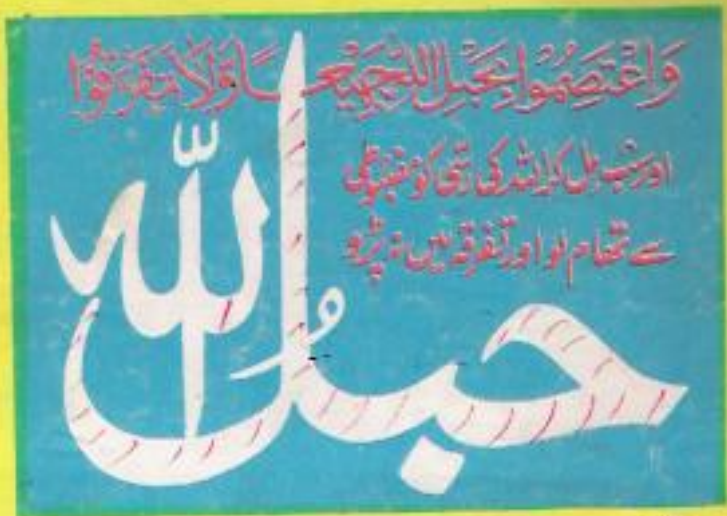 وَاعْتَصِمُوا بِحَبْلِ اللهِ جَمِيْعًا وَّلَا تَفَرَّقُوْا
اور سب مل کر اللہ کی رسی کو مضبوطی
سے تھام لو اور تفرقہ میں نہ پڑو
حبلُ اللہ